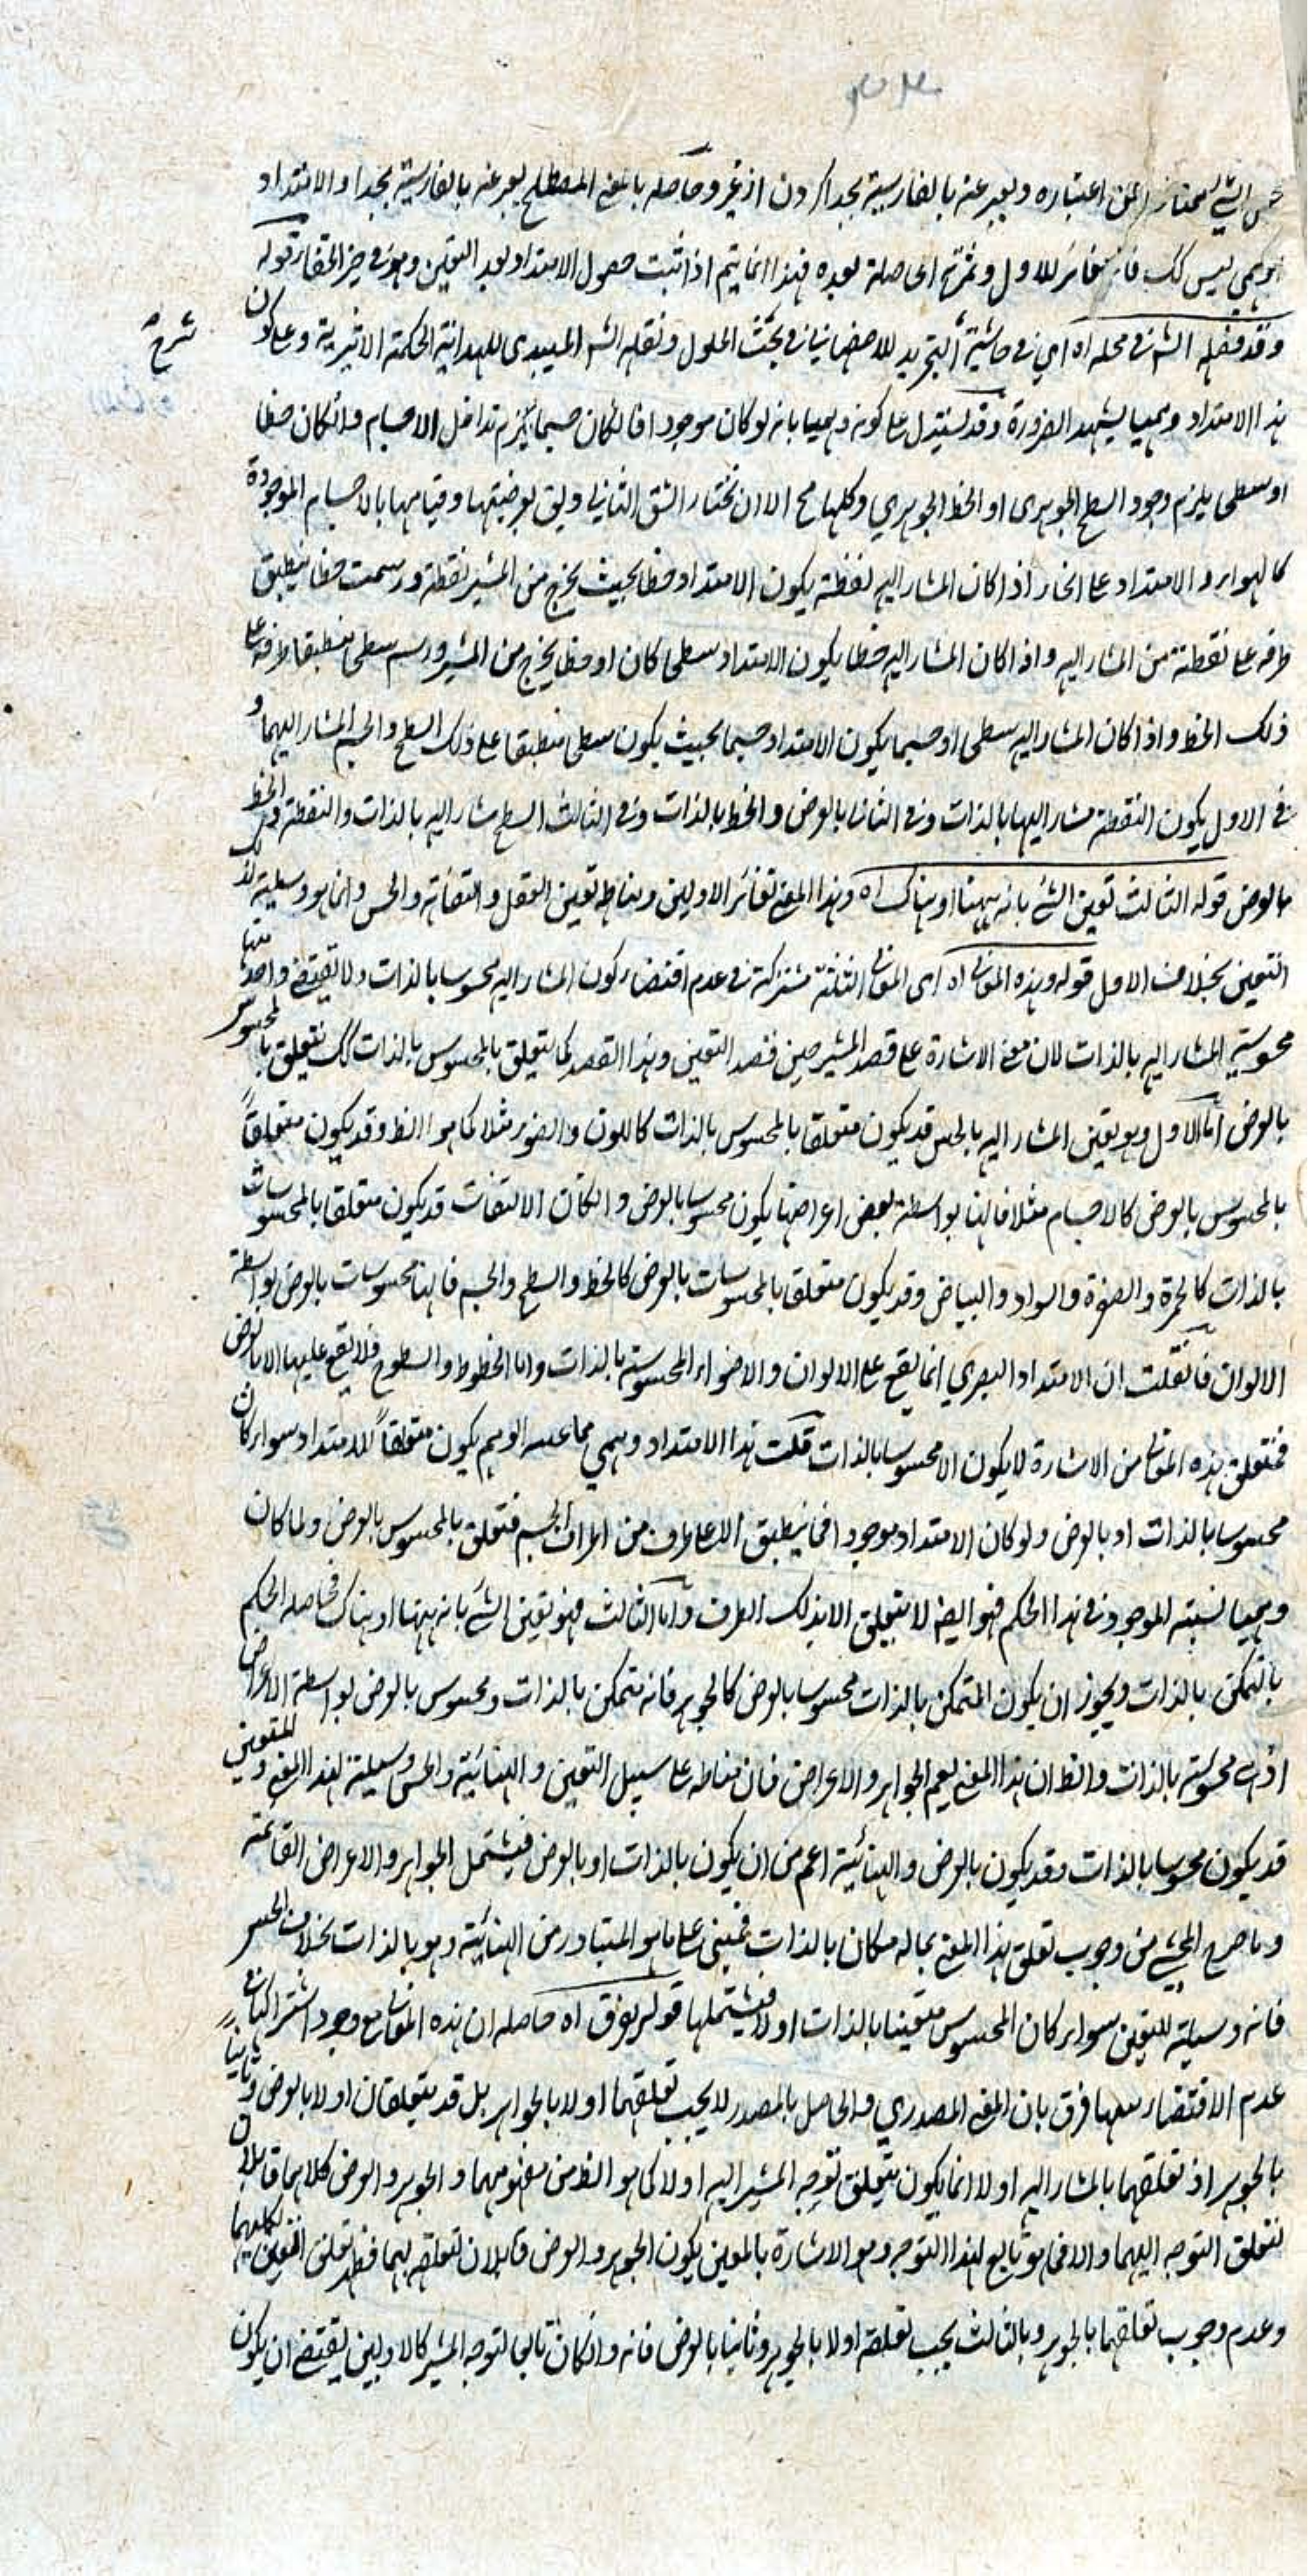 الشيء ممتاز اعتباره ويعبر عنه بالفارسية بجدا كردن از غير وحاصله بالمعنى المصطلح يعبر عنه بالفارسية بجدا والامتداد
ليس كك فانه مغائر للاول وثمرته الحاصلة بعده فهذا انما يتم اذا ثبت حصول الامتداد بعد التعين وهو في حيز الخفاء قوله
وقد فصله الش في محله اه اي في حاشية التجريد للاصفهاني في بحث الحلول ونقله الش الميبدي للهداية الحكمة الاثيرية وعلى كون
شرح
هذا الامتداد وهميا يشهد الضرورة وقد يستدل على كونه وهميا بانه لو كان موجودا فالكان جسما يلزم تداخل الاجسام وانكان خطا
او سطحا يلزم وجود السطح الجوهرى او الخط الجوهري وكلها مح الا ان نختار الشق الثاني ويق بعرضيتها وقيامها بالاجسام الموجودة
كالهواء والامتداد على انحاء اذا كان المشار اليه نقطة يكون الامتداد خطا بحيث يخرج من المشير نقطة ورسمت خطا ينطبق
طرفه على نقطة من المشار اليه واذا كان المشار اليه خطا يكون الامتداد سطحا كان او خطا يخرج من المشير ورسم سطحا منطبقا طرفه على
ذلك الخط واذا كان المشار اليه سطحا او جسما يكون الامتداد جسما بحيث يكون سطحا منطبقا على ذلك السطح والجسم المشار اليهما و
في الاول يكون النقطة مشار اليها بالذات وفي الثاني بالعرض والخط بالذات وفي الثالث السطح مشار اليه بالذات والنقطة والخط
بالعرض قوله الثالث تعين الشئ بانه ههنا او هناك اه وهذا المعنى تغائر الاولين ومناطه تعين العقل والتفاته والحس وانما هو وسيلة لذلك
التعين بخلاف الاول قوله وهذه المعاني اه اي المعاني الثلثة مشتركة في عدم اقتضاء كون المشار اليه محسوسا بالذات ولا يقتضي واحد منها
محسوسية المشار اليه بالذات لان معنى الاشارة على قصد المشير حين قصد التعين وهذا القصد كما يتعلق بالمحسوس بالذات كك يتعلق بالمحسوس
بالعرض اما الاول وهو تعين المشار اليه بالحس قد يكون متعلقا بالمحسوس بالذات كاللون والضوء مثلا كما هو الظ وقد يكون متعلقاً
بالمحسوس بالعرض كالاجسام مثلا فانها بواسطة بعض اعراضها يكون محسوسا بالعرض والثاني الالتفات قد يكون متعلقا بالمحسوسات
بالذات كالحمرة والصفرة والسواد والبياض وقد يكون متعلقا بالمحسوسات بالعرض كالخط والسطح والجسم فانها محسوسات بالعرض بواسطة
الالوان فان قلت ان الامتداد البصري انما يقع على الالوان والاضواء المحسوسة بالذات واما الخطوط والسطوح فلا يقع عليها الا بالعرض
فمتعلق هذه المعاني من الاشارة لا يكون الا محسوسا بالذات قلت هذا الامتداد وهمي مما الوهم يكون متعلقاً للامتداد سواء كان
محسوسا بالذات او بالعرض ولو كان الامتداد موجودا فما ينطبق الا على طرف من اطراف الجسم فتعلق بالمحسوس بالعرض ولما كان
وهميا نسبته الموجود في هذا الحكم فهو ايضا لا يتعلق الا بذلك الطرف واما الثالث فهو تعين الشئ بانه ههنا او هناك فحاصله الحكم
بالتمكن بالذات ويجوز ان يكون المتمكن بالذات محسوسا بالعرض كالجوهر فانه متمكن بالذات ومحسوس بالعرض بواسطة الاعراض
اذ هي محسوسة بالذات والظ ان هذا المعنى يعم الجواهر والاعراض فان مناطه على سبيل التعين والهنائية والحس وسيلة لهذا المعنى والمتعين
قد يكون محسوسا بالذات وقد يكون بالعرض والهنائية اعم من ان يكون بالذات او بالعرض فيشتمل الجواهر والاعراض القائمة
وما صرح المحشي من وجوب تعلق هذا المعنى بما له مكان بالذات فمبني على ما هو المتبادر من الهنائية وهو بالذات بخلاف الحس
فانه وسيلة للتعين سواء كان المحسوس متعينا بالذات او لا فيشتملها قوله يفرق اه حاصله ان هذه المعاني مع وجود اشتراكها في
عدم الاقتضاء بينها فرق بان المعنى المصدري والحاصل بالمصدر لا يجب تعلقهما اولا بالجواهر بل قد يتعلقان اولا بالعرض وثانيا
بالجوهر اذ تعلقهما بالمشار اليه اولا انما يكون يتعلق توجه المشير اليه اولا كما هو الظ من مفهومهما والجوهر والعرض كلاهما قابلان
لتعلق التوجه اليهما والا فما هو تابع لهذا التوجه وهو الاشارة بالمعنيين يكون الجوهر والعرض قابلان لتعلقه بهما فظهر تعلق المعنيين بكليهما
وعدم وجوب تعلقهما بالجوهر وبالثالث يجب تعلقه اولا بالجوهر وثانيا بالعرض فانه وانكان تابعا لتوجه المشير كالاولين يقتضي ان يكون